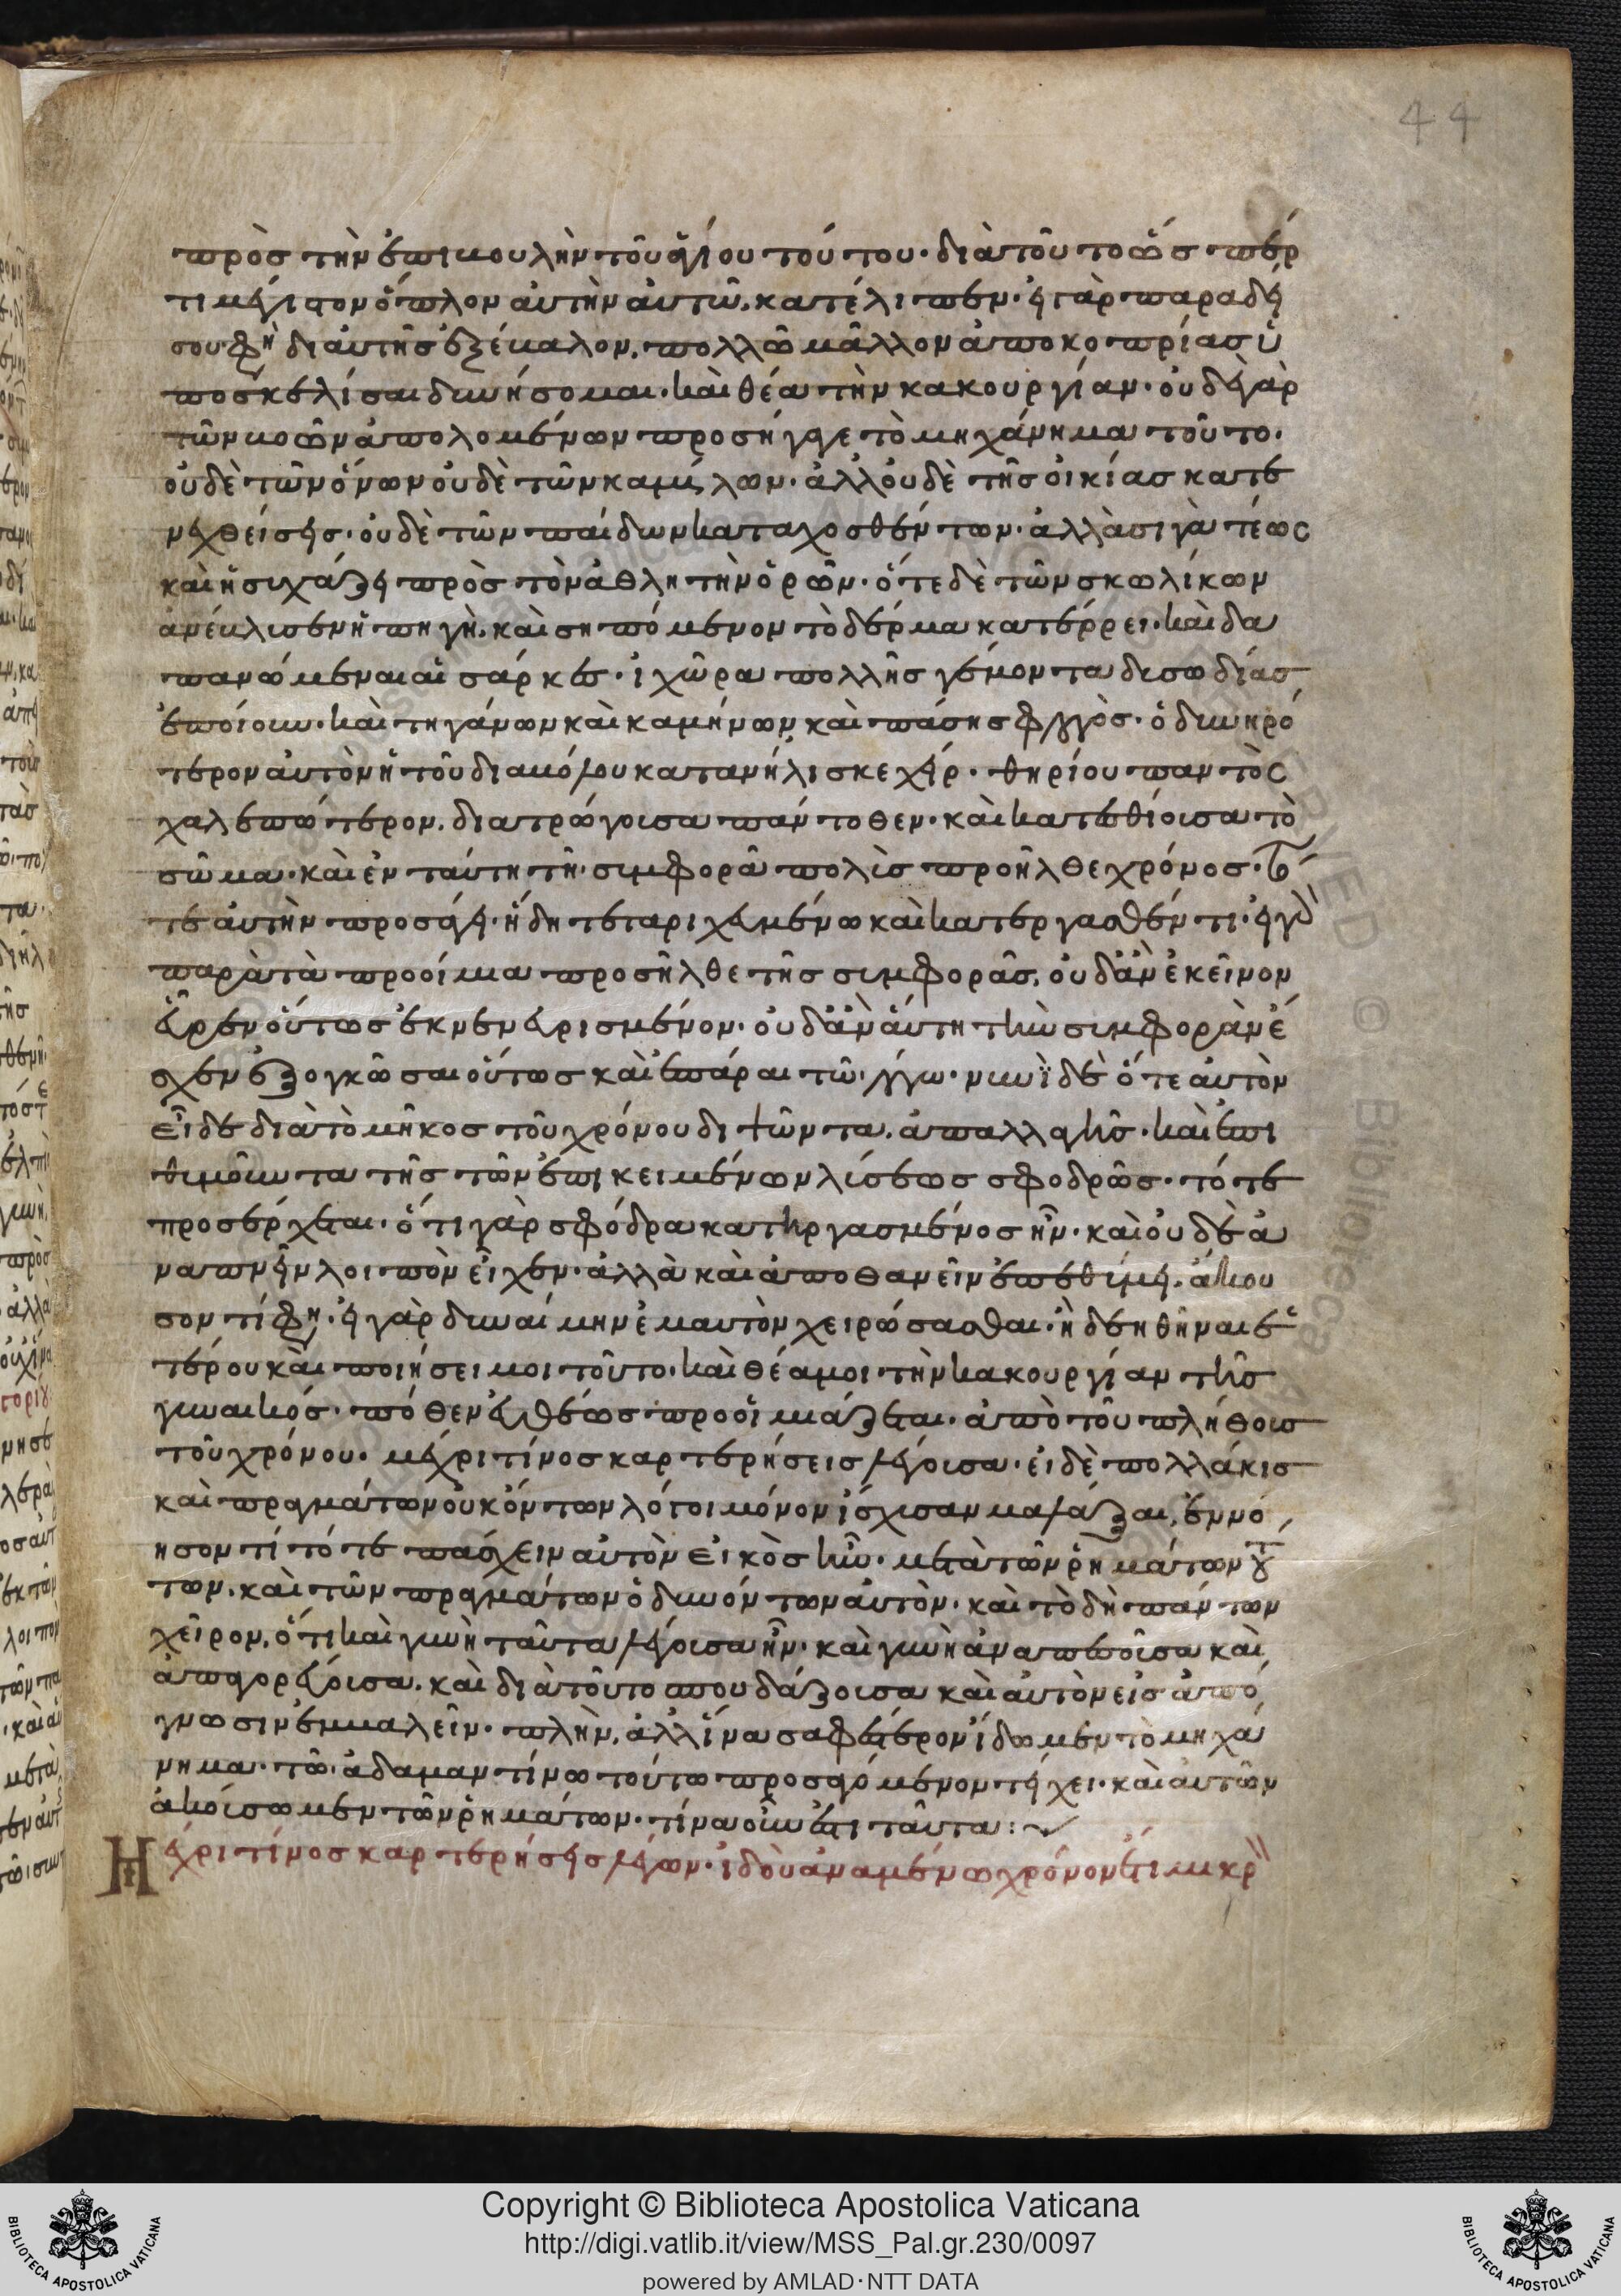 44
πρὸς τὴν ἐπιβουλὴν τοῦ ἁγίου τούτου· διὰ τοῦτο ὥσπερ
τι μέγιστον ὅπλον αὐτὴν αὐτῶ, κατέλιπεν· εἰ γὰρ παραδεί
σου φη δι αὐτῆς ἐξέβαλον, πολλῶ μᾶλλον ἀπο κοπρίας ὑ
ποσκελίσαι δυνήσομαι· καὶ θέα τὴν κακουργίαν· οὐδὲ γὰρ
τῶν βοῶν ἀπολομένων προσήγαγε τὸ μηχάνημα τοῦτο·
οὐδὲ τῶν ὄνων οὐδὲ τῶν καμίλων· ἀλλ οὐδὲ τῆς οἰκίας κατε
νεχθείσης· οὐδὲ τῶν παίδων καταχοσθέντων· ἀλλὰ σιγὰ τέως
καὶ ἡσιχάζει πρὸς τὸν ἀθλητὴν ὁρῶν· ὅτε δὲ τῶν σκωλίκων
ἀνέκλισεν ἡ πηγὴ, καὶ σηπόμενον τὸ δέρμα κατέρρει· καὶ δα
πανώμεναι αἱ σάρκες· ἰχῶρα πολλῆς γέμοντα δισωδίας
ἐποίουν· καὶ τηγάνων καὶ καμήνων καὶ πάσης φλογὸς· ὀδυνηρό
τερον αὐτὸν ἡ τοῦ διαβόλου κατανήλισκε χείρ· θηρίου παντὸς
χαλεπώτερον, διατρώγουσα πάντοθεν· καὶ κατεσθίουσα τὸ
σῶμα· καὶ ἐν ταύτη τῆ σιμφορᾶ πολὺς προῆλθε χρόνος· τό
τε αὐτὴν προσάγει· ἤδη τεταριχευμένω καὶ κατεργασθέντι· εἰ γὰρ
παρὰ τὰ προοίμια προσῆλθε τῆς σιμφορᾶς, οὐδ ἂν ἐκεῖνον
εὗρεν οὕτως ἐκνενευρισμένον· οὐδ ἂν αὕτη τὴν σιμφορὰν ἔ
σχεν ἐξογκῶσαι οὕτως καὶ ἐπάραι τῶ λόγω· νυνὶ δὲ ὅτε αὐτὸν
εἶδε διὰ τὸ μῆκος τοῦ χρόνου διψῶντα, ἀπαλλαγῆς· καὶ ἐπι
θιμοῦντα τῆς τῶν ἐπικειμένων λίσεως σφοδρῶς· τότε
προσέρχεται· ὅτι γὰρ σφόδρα κατηργασμένος ἦν· καὶ οὐδὲ ἀ
ναπνεῖν λοιπὸν εἶχεν· ἀλλὰ καὶ ἀποθανεῖν ἐπεθίμει, ἄκου
σον τί φη· εἰ γὰρ δυναίμην ἐμαυτὸν χειρώσασθαι· ἢ δεηθῆναι ἑ
τέρου καὶ ποιήσει μοι τοῦτο· καὶ θέα μοι τὴν κακουργίαν τῆς
γυναικός· πόθεν εὐθέως προοϊμιάζεται· ἀπὸ τοῦ πλήθους
τοῦ χρόνου· μέχρι τίνος καρτερήσεις λέγουσα· εἰ δὲ πολλάκις
καὶ πραγμάτων οὐκ ὄντων λόγοι μόνον ἴσχισαν μαλάξαι, ἐννό
ησον τί τότε πάσχειν αὐτὸν εἰκὸς ἦν· μετὰ τῶν ῥημάτων τού
των, καὶ τῶν πραγμάτων ὀδυνόντων αὐτὸν· καὶ τὸ δὴ πάντων
χεῖρον, ὅτι καὶ γυνὴ ταῦτα λέγουσα ἦν· καὶ γυνὴ ἀναπεσοῦσα καὶ
ἀπαγορεύουσα, καὶ διὰ τοῦτο σπουδάζουσα καὶ αὐτὸν εἰς ἀπό
γνωσιν ἐμβαλεῖν· πλὴν, ἀλλ ἵνα σαφέστερον ἴδωμεν τὸ μηχά
νημα· τῶ ἀδαμαντίνω τούτω προσαγόμενον τείχει· καὶ αὐτῶν
ἀκούσωμεν τῶν ῥημάτων· τίνα οὖν ἐστι ταῦτα :
Μέχρι τίνος καρτερήσεις λέγων· ἰδοὺ ἀναμένω χρόνον ἔτι μικρὸν
Copyright © Biblioteca Apostolica Vaticana
http://digi.vatlib.it/view/MSS_Pal.gr.230/0097
powered by AMLAD·NTT DATA
BIBLIOTECA APOSTOLICA VATICANA
BIBLIOTECA APOSTOLICA VATICANA